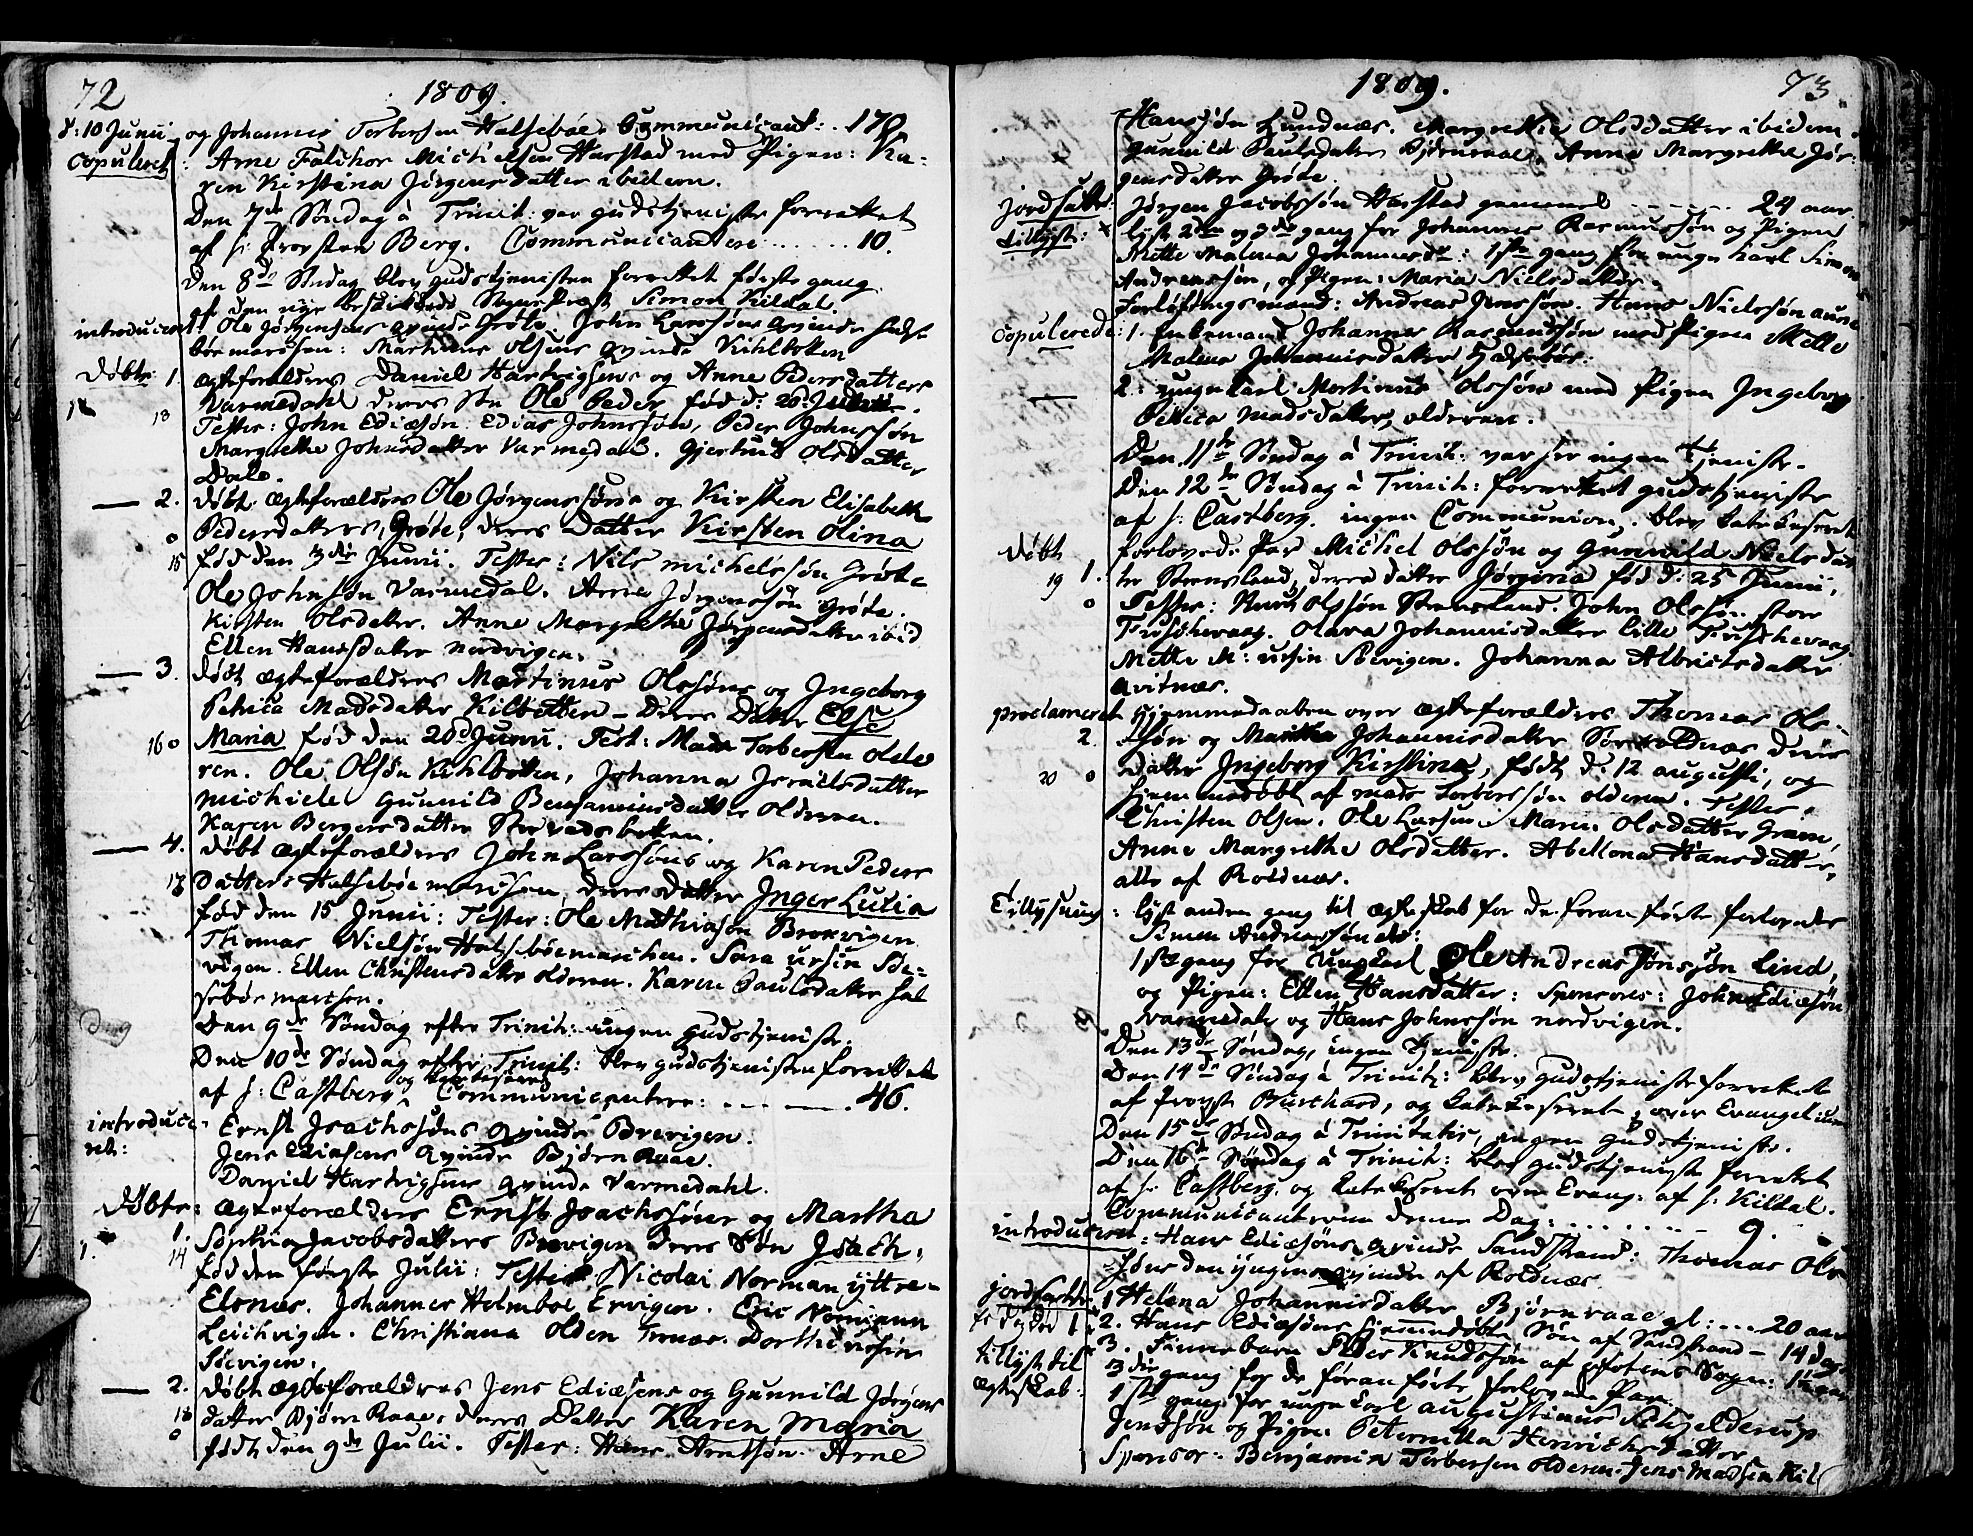 72
1809.
d: 10 Junii og Johannes Torbersen Halsebøe. Communicant:. 170.
Copuleret: Arne Falchor Michelsen Harstad med Pigen: Ka-
ren Kirstina Jørgensdatter ibidem.
Den 7de Søndag à Trinit: var gudstjeniste forrettet
af h: Provsten Berg. Communicantere: ...... 10.
Den 8de Søndag blev gudstjenisten forrettet første gang
af den nye Sogne Præst Simon Kildal.
introduceret: Ole Jørgensens qvinde Grøte. John Larssøns qvinde Halse
bøe marchen: Martinus Olsens qvinde Kihlbotten
Døbte 1. Ægteforældres Daniel Hartvigsens og Anne Pedersdatters
Varmedahl deres Søn Ole Peder fød d: 20
18 Tester: John Ediæsøn. Edias Johnssøn, Peder Johnssøn
Margrethe Johnsdatter Varmedal. Gjertrud Olsdatter
Dale.
2. døbt Ægteforældres Ole Jørgenssøns og Kirsten Elisabeth
Pedersdatters, Grøte, deres Datter Kirsten Olina
15 fød den 3die Junii. Tester: Nils Michelssøn Grøte
Ole Johnsøn Varmedal. Arne Jørgenssøn Grøte.
Kirsten Olsdatter. Anne Margrethe Jørgensdatter ibid
Ellen Hansdatter Nordvigen.
3. døbt Ægteforældres Martinus Olssøns og Ingeborg
Petrica Madsdatter Kilbotten - Deres Datter Else
16 Maria fød den 20d Junii. Test: Mads Torbersen Olde
ren. Ole Olsøn Kihlbotten, Johanna Israelsdatter
Michiele Gunnild Benjaminsdatter Olderen.
Karen Bergersdatter
4. døbt Ægteforældres John Larssøns og Karen Peders
17 datters Halsebøe marchen, deres Datter Inger Lucia
fød den 15 Junii: Tester: Ole Mathiasøn Brokvigen
Thomas Nielsøn Halsebøemarchen. Sara Ursin Søe-
vigen. Ellen Christensdatter Olderen. Karen Paulsdatter Hal
sebøe marchen.
Den 9de Søndag efter Trinit: ingen Gudstjeniste.
Den 10de Søndag efter Trinit: blev gudstjenisten forrettet
af h: Castberg og Communicantere: ... 46.
introduce-
ret: Ernst Isachssøns qvinde Brevigen.
Jens Ediæsens qvinde Bjørn Raae.
Daniel Hartvigsens qvinde Varmedahl.
Døbte: Ægteforældres Ernst Isachssøns og Martha
1. Sophia Jacobsdatters Brevigen deres Søn Isach,
14 fød den første Julii: Tester Nicolai Norman yttre-
Elsnes. Johannes Holmboe Ervigen. Eric Normann
Leichvigen. Christiana Olden Trones. Dorthe Ursin
Søevigen.
2. døbt Ægteforældres Jens Ediæsens og Gunnild Jørgens
18 datter Bjørn Raae, deres Datter Karen Maria
født den 9de Julii. Tester: Hans Arntsøn. Arne
1809.
73.
Hanssøn Lundnæs. Margrethe Olsdatter ibidem.
Gunnild Paulsdatter Bjørnraae. Anne Margrethe Jør-
gensdatter Grøte.
jordsatte: Jørgen Jacobssøn Harstad gammel ...... 24 aar.
tillyst: lyst 2den og 3die gang for Johannes Rasmussøn og Pigen
Mette Malena Johannesd: 1ste gang for unge karl Simon
Andreassøn, og Pigen: Maria Nielsdatter.
Forlovingsmænd: Andreas Jenssøn. Hans Nielssøn
Copulerede: 1. Enkemand Johannes Rasmussøn med Pigen Mette
Malena Johannisdatter Halsebøe.
2: unge karl Martinus Olssøn med Pigen Ingeborg
Petrica Madsdatter, Olderen.
Den 11te Søndag à Trinit: var her ingen Tjeniste.
Den 12te Søndag à Trinit: forrettet gudstjeniste
af h: Castberg. ingen Communion, blev katekiseret
Døbt forlovede Par Michel Olssøn og Gunnild Nielsdat
19 1. ter Stensland, deres datter Jørgina fød d: 25 Junii,
Tester: Knud Olssøn Stensland. John Olssøn store
Trischevaag. Olava Johannisdatter lille Trischevaag.
Mette M: Ursin Søevigen. Johanna Albrictsdatter
qvitnæs.
proclameret Hjemmedaaben over Ægteforældres Thomas Ols-
2. søn og Martha Johannisdatter Sør Roldnæs deres
20 datter Ingeborg Kirstina, født d: 12 augusti, og
hjemmedøbt af Mads Torberssøn Olderen. Tester.
Christen Olsen. Ole Larsen. Maren Olsdatter Gram,
Anne Margrethe Olsdatter. Abellona Hansdatter,
alle af Roldnæs.
Tillysning: lyst anden gang til Ægteskab for de foran førte forlovede
Simon Andreassøn etc:
1ste gang for Ungkarl Ole Andreas Jonssøn Lind,
og Pigen: Ellen Hansdatter: Sponsores: John Ediæsøn
Varmedal og Hans Johnssøn Nordvigen.
Den 13de Søndag, ingen Tjeniste.
Den 14de Søndag à Trinit: blev gudstjeniste forrettet
af Provst Burchard, og katekiseret over Evangelium
Den 15de Søndag à Trinitatis, ingen gudstjeniste.
Den 16de Søndag à Trinit: blev gudstjeniste forrettet
af h: Castberg. og katekiseret over Evang: af h: Kildal.
Communicanterne denne Dag: ........ 9.
introduceret: Hans Ediæsøns qvinde Sandstrand: Thomas Ols
søns den yngere qvinde af Roldnæs
jordfæstede 1 Helena Johannisdatter Bjørnraae gl: ... 20 aar
2. Hans Ediæsøns hjemmedøbte Søn af Sandstrand - 14 dage
3. Finnebarn Peder Knudssøn af Ofotens Sogn:
tillyst til 3die gang for de foran førte forlovede Par.
Ægteskab: 1ste gang for unge karl Augustinus Schjelderup
Jenssøn og Pigen Peternilla Henrichsdatter
Sponsor: Benjamin Torbersen Olderen. Jens Madsen Kil